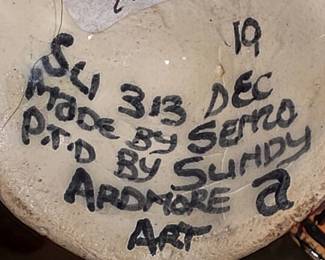 19
Su 313 DEC
MADE BY SENZO
P.T.D BY SLINDY
ARDMORE a
ART